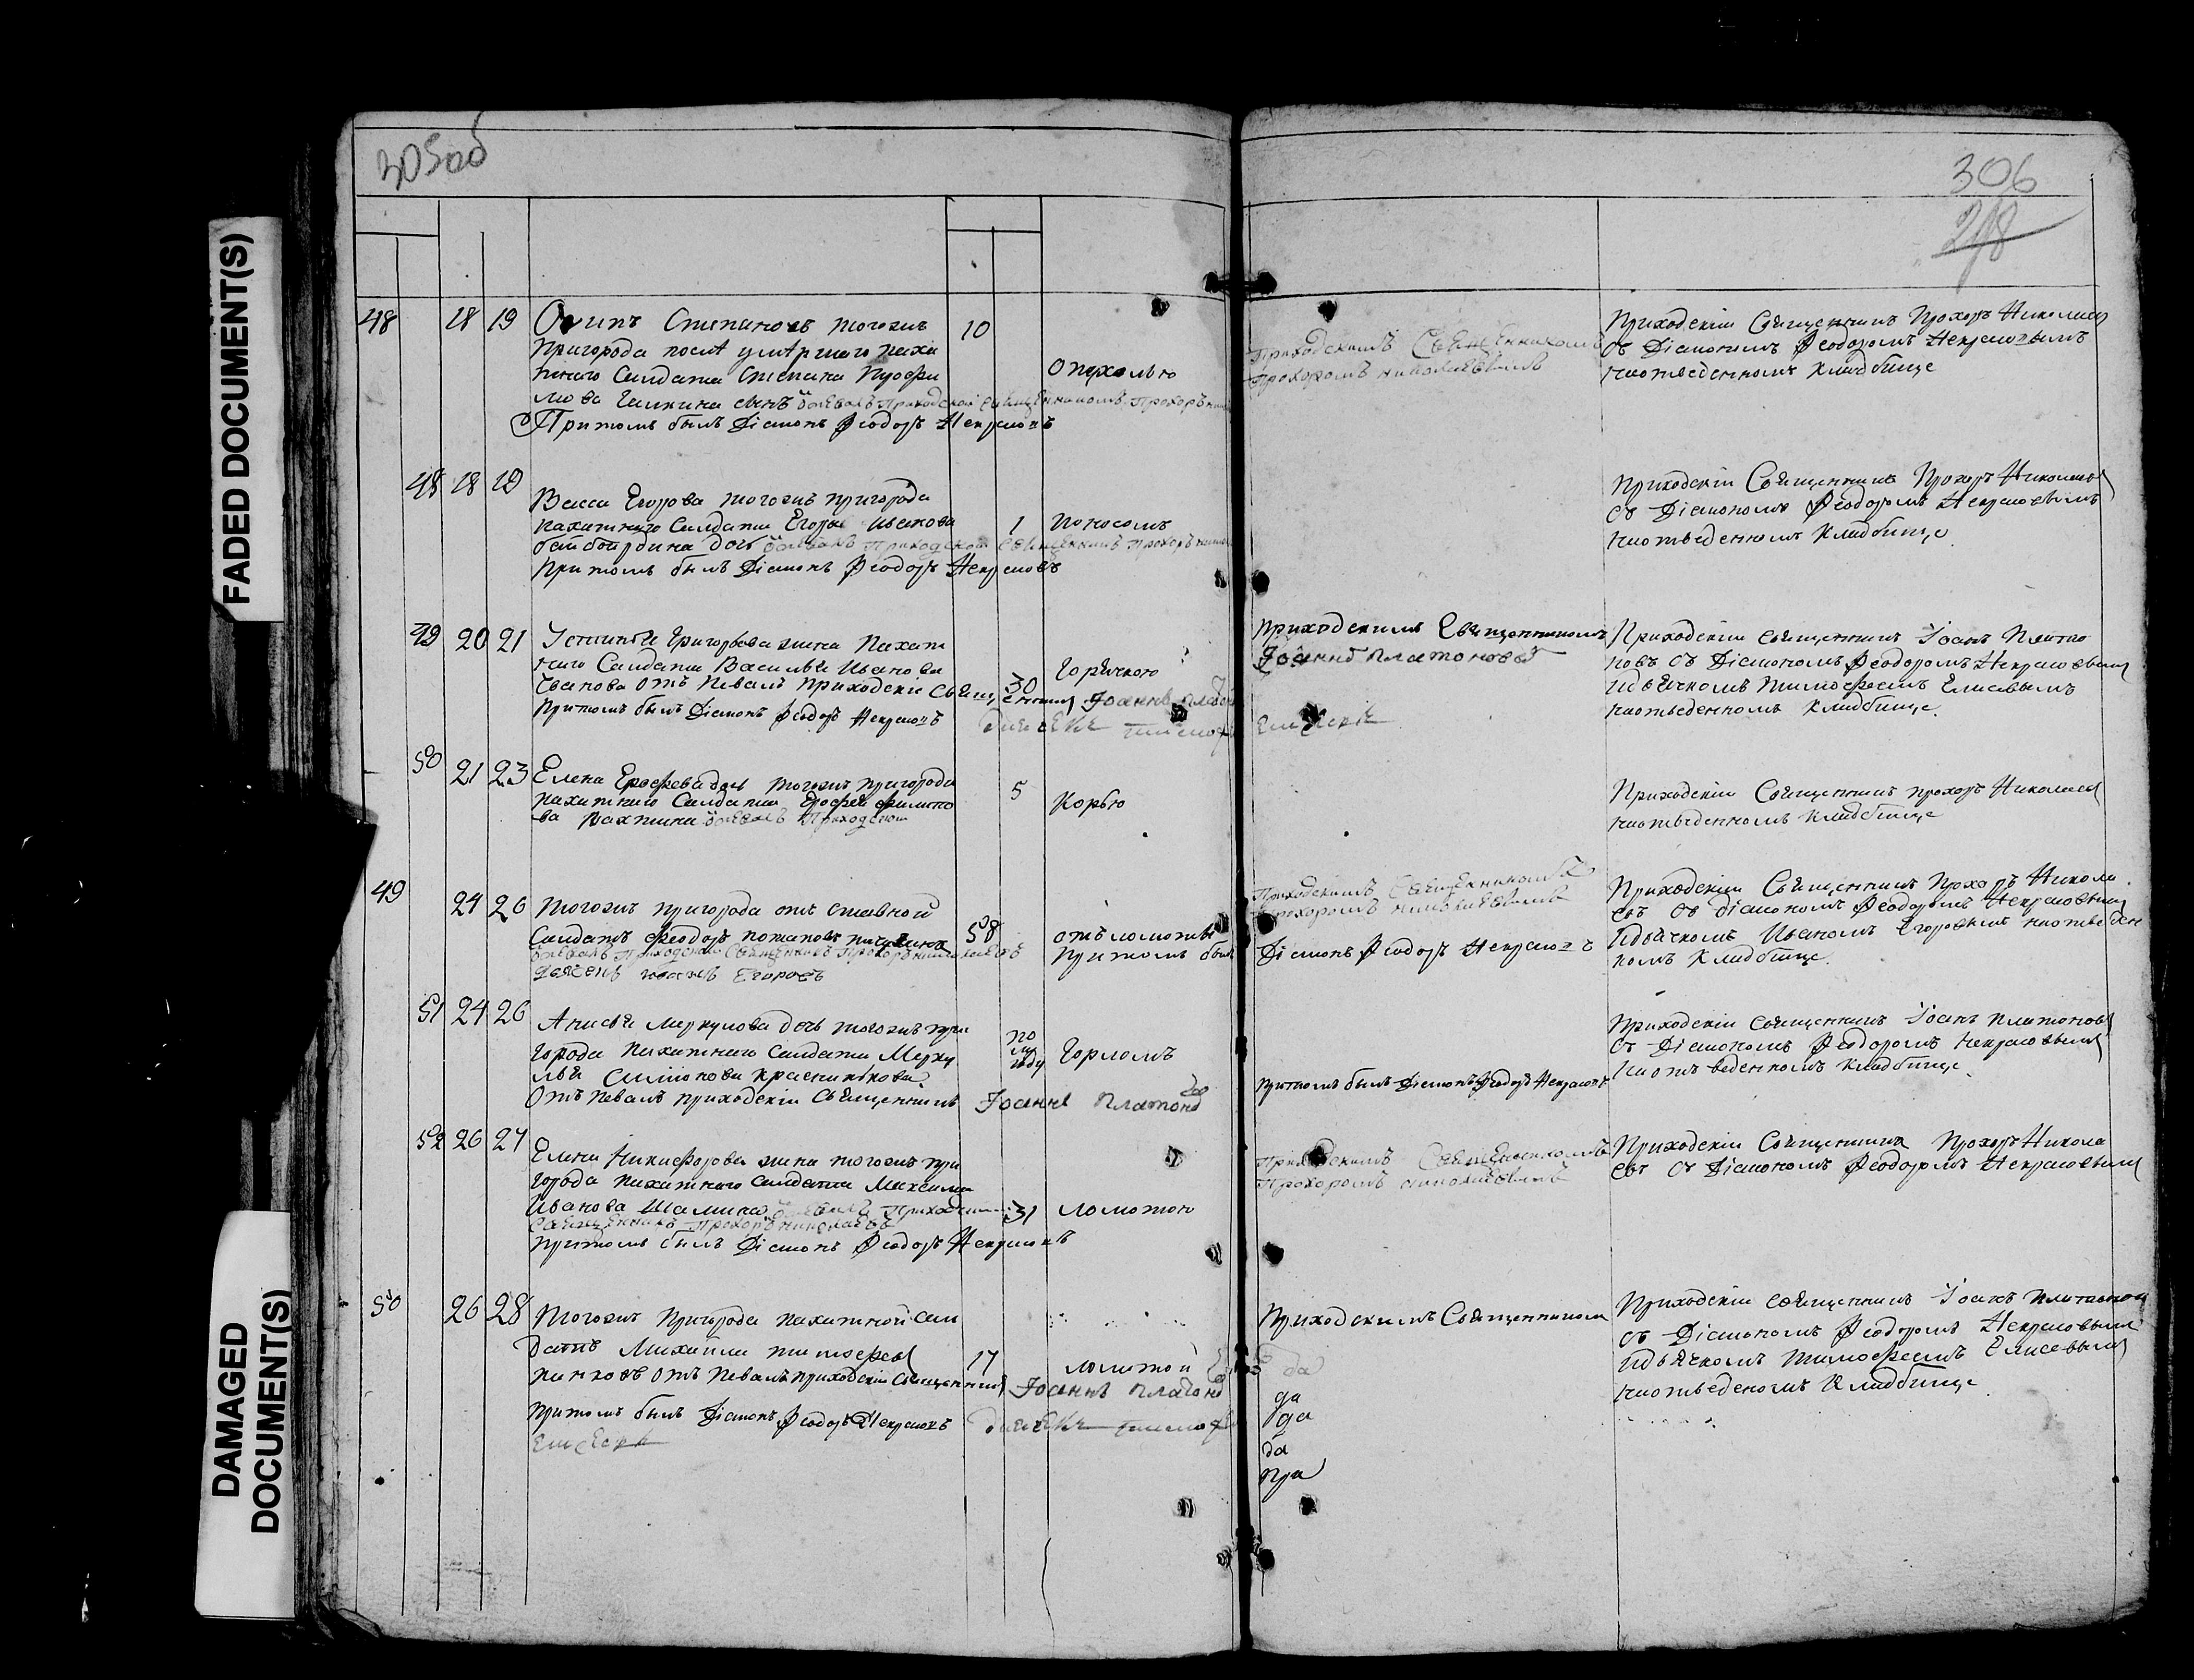 FADED DOCUMENT(S)
DAMAGED
DOCUMENT(S)
305об
306
298
48 18 19
Осипъ Степановъ тогожъ
пригорода послѣ умѣршаго пахат
наго Салдата Степана Профи
лова сынъ
При томъ былъ Діаконъ Ѳеодоръ Некрасовъ
10
Опухолью
Приходскимъ Священникомъ
Прохоромъ Николаевымъ
Приходскіи Священникъ Прохоръ Николаев
съ Діакономъ Ѳеодоромъ Некрасовымъ
на отведенномъ кладбище
48 18 19
Васса Егорова тогожъ пригорода
пахатнаго Салдата Егора Иванова
дочь Приходской Священникъ Прохоръ
При томъ былъ Діаконъ Ѳеодоръ Некрасовъ
1
Поносомъ
Приходскіи Священникъ Прохоръ Николаевъ
съ Діакономъ Ѳеодоромъ Некрасовымъ
на отведенномъ кладбище
49 20 21
Устинья Григорьева жена Пахат
наго Салдата Василья Иванова
Чванова отъ певалъ приходскіи Священникъ Іоаннъ
При томъ былъ Діаконъ Ѳеодоръ Некрасовъ
30
Горячкою
Приходскимъ Священникомъ
Іоаннъ Платоновъ
Приходскіи священникъ Іоанъ Плато
новъ съ Діакономъ Ѳеодоромъ Некрасовым
и дьячкомъ Тимофеемъ Елисевымъ
на отведенномъ кладбище
50 21 23
Елена Ерофева дочь тогожъ пригорода
пахатнаго Салдата Ерофея Филипо
ва Вахтина Приходской
5
Корью
Приходскіи Священникъ прохоръ Николаев
на отведенномъ кладбище
49 24 26
тогожъ пригорода отъ ставной
Салдатъ Феодоръ потаповъ
Приходской Священникъ Прохоръ
Егоровъ
58
отъ ломоты
При томъ былъ Діаконъ Ѳеодоръ Некрасовъ
Приходскимъ Священникомъ
Прохоромъ Николаевымъ
Приходскіи Священникъ Прохоръ Никола
евъ съ діакономъ Ѳеодоромъ Некрасовым
и дьячкомъ Иваномъ Егоровымъ на отведен
номъ кладбище
51 24 26
Анисья Меркулова дочь тогожъ при
города Пахатнаго Салдата Мерку
лья Симонова Красникова
Отъ певалъ приходскіи Священникъ Іоаннъ Платонов
по
лу
году
Горломъ
При томъ былъ Діаконъ Ѳеодоръ Некрасовъ
Приходскіи священникъ Іоанъ Платоновъ
съ Діакономъ Ѳеодоромъ Некрасовым
на отведенномъ кладбище
52 26 27
Елена Никифорова жена тогожъ при
города Пахатнаго Салдата Максима
Иванова Шамина Приходской
Священникъ Прохоръ Николаевъ
При томъ былъ Діаконъ Ѳеодоръ Некрасовъ
31
Ломотою
Приходскимъ Священникомъ
Прохоромъ Николаевымъ
Приходскіи Священникъ Прохоръ Никола
евъ съ Діакономъ Ѳеодоромъ Некрасовым
50 26 28
тогожъ Пригорода пахатной сал
датъ Михайла тимофеев
отъ певалъ приходскіи Священникъ Іоаннъ Платонов
При томъ былъ Діаконъ Ѳеодоръ Некрасовъ
17
ломотой
Приходскимъ Священником
да
да
да
да
при
Приходскіи священникъ Іоанъ Платонов
съ Діакономъ Ѳеодоромъ Некрасовым
и дьячкомъ Тимофеемъ Елисевым
на отведеномъ кладбище